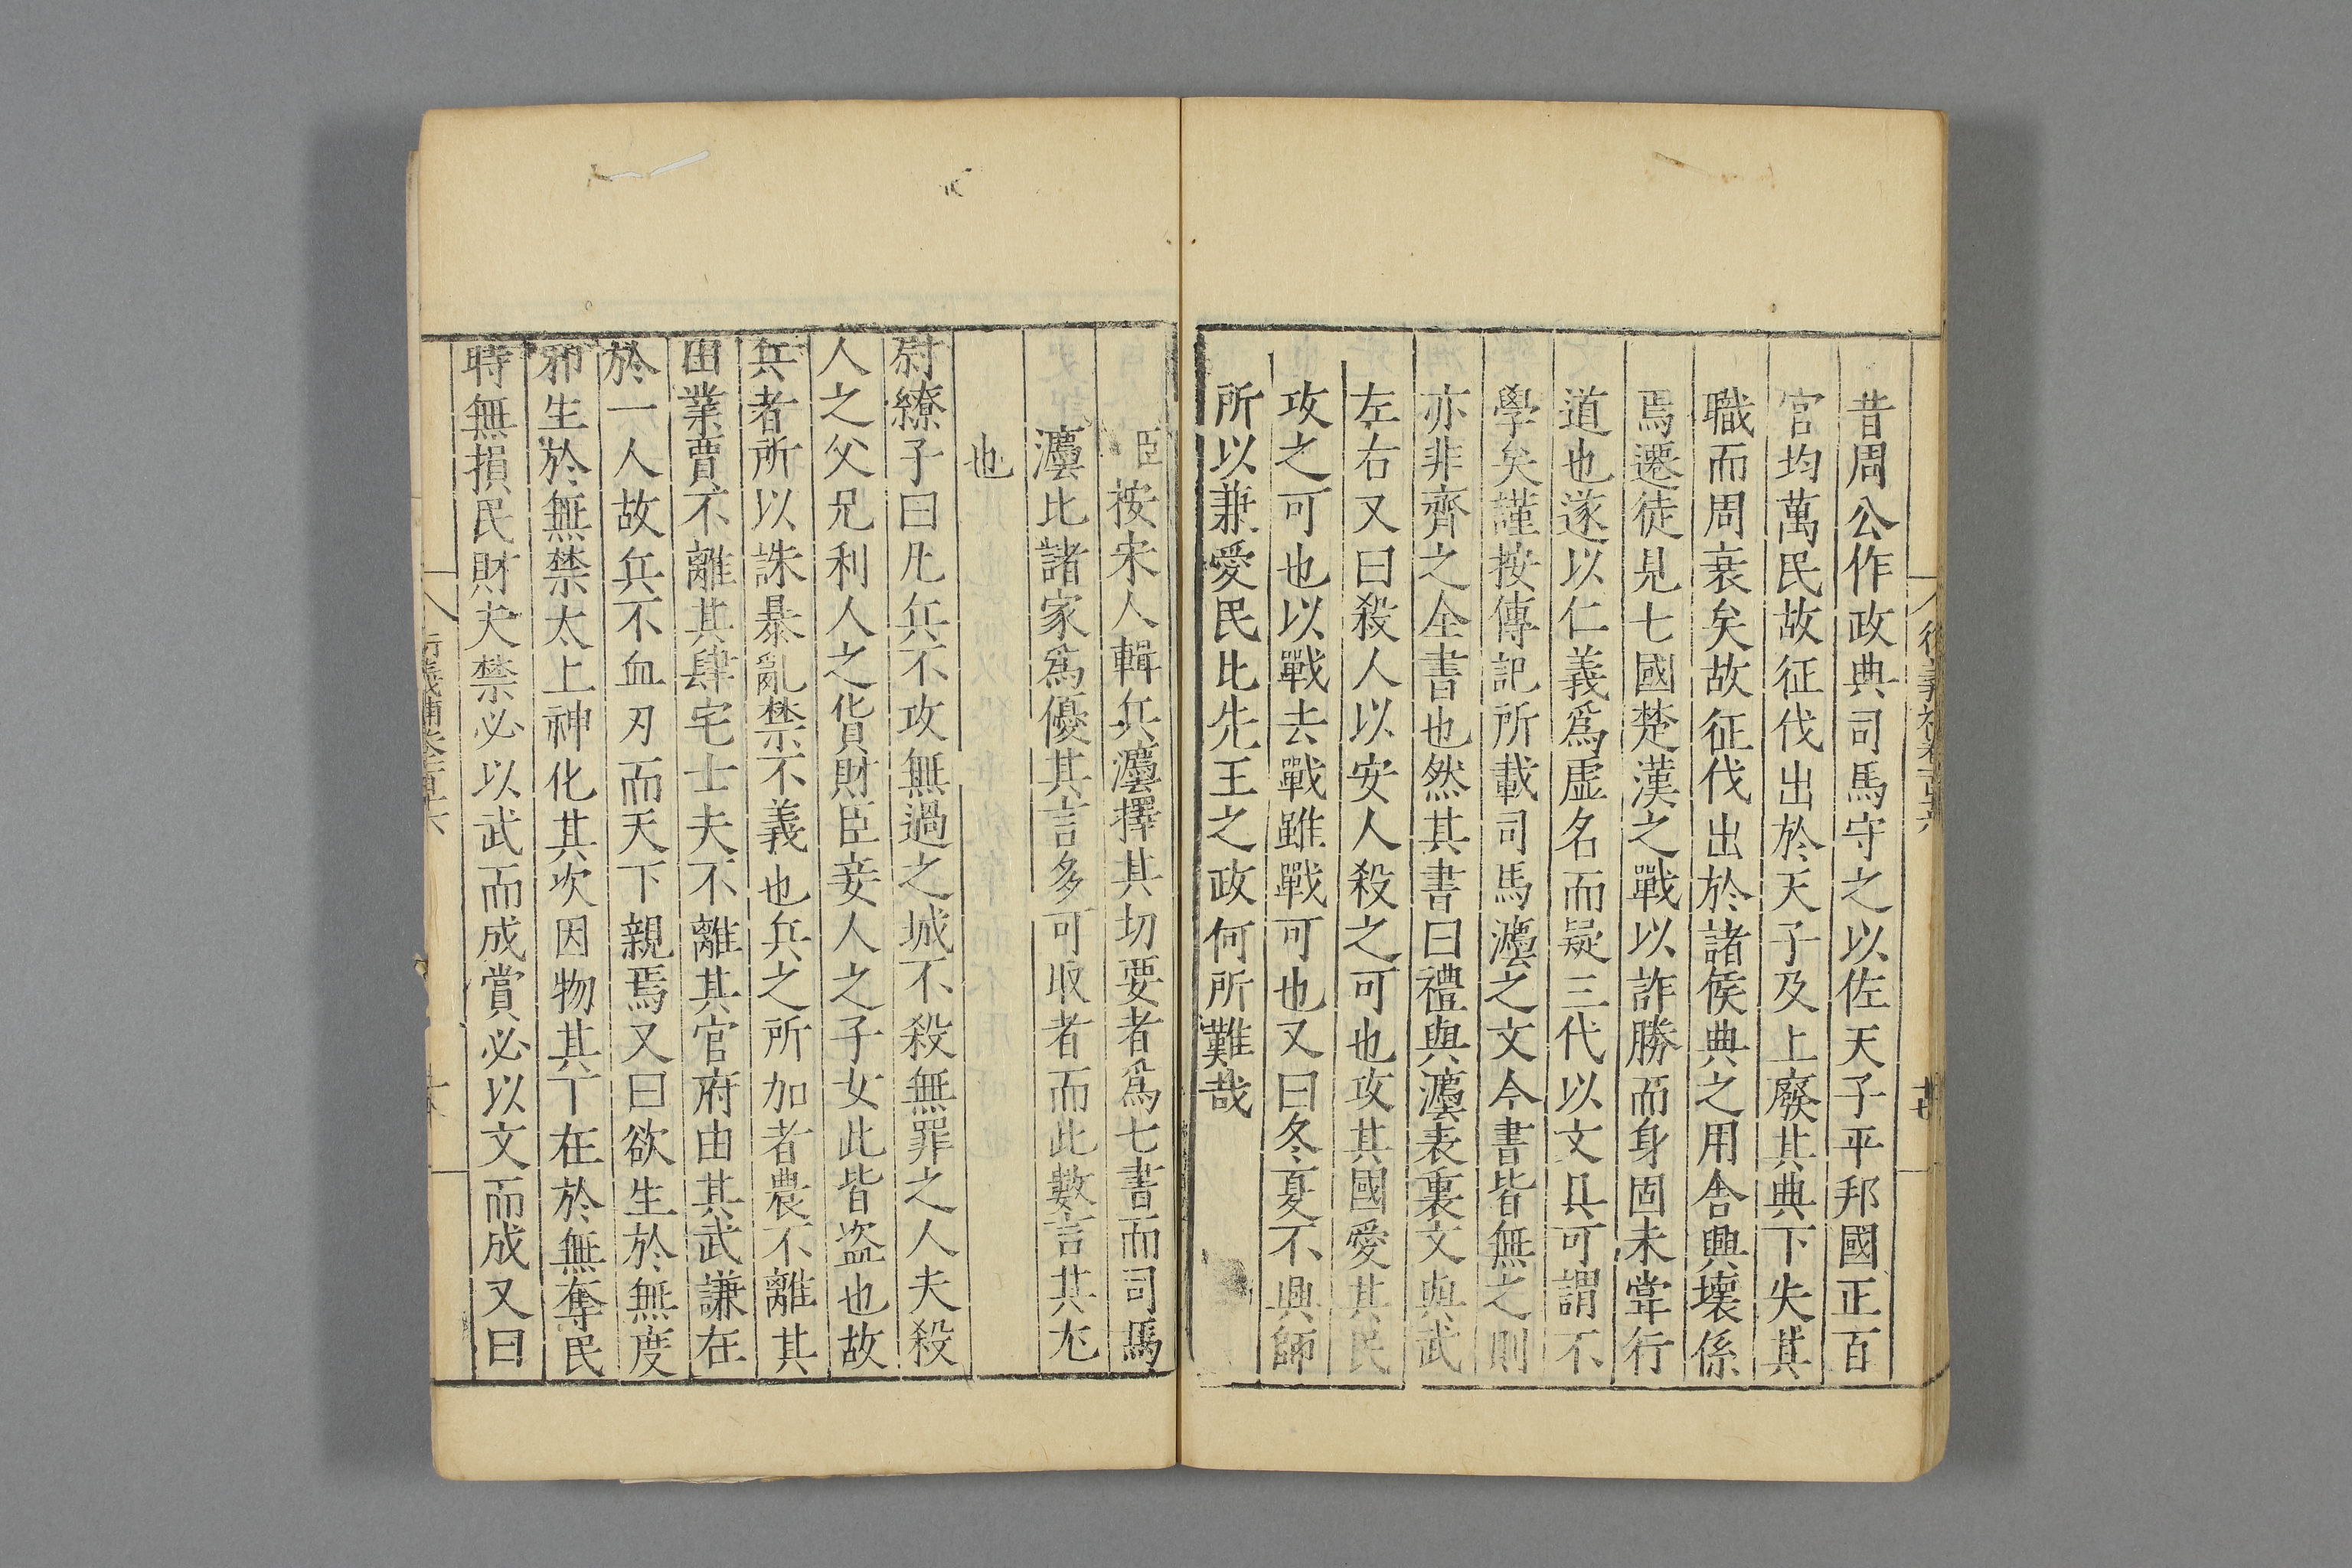 昔周公作政典司馬守之以佐天子平邦國正百
官均萬民故征伐出於天子及上廢其典下失其
職而周衰矣故征伐出於諸侯典之用舍興壞係
焉遷徒見七國楚漢之戰以詐勝而身固未嘗行
道也遂以仁義爲虛名而疑三代以文具可謂不
學矣謹按傳記所載司馬灋之文今書皆無之則
亦非齊之全書也然其書曰禮與灋表裏文與武
左右又曰殺人以安人殺之可也攻其國愛其民
攻之可也以戰去戰雖戰可也又曰冬夏不興師
所以兼愛民比先王之政何所難哉
臣按宋人輯兵灋擇其切要者爲七書而司馬
灋比諸家爲優其言多可取者而此數言其尤
也
尉繚子曰凡兵不攻無過之城不殺無罪之人夫殺
人之父兄利人之貨財臣妾人之子女此皆盜也故
兵者所以誅暴亂禁不義也兵之所加者農不離其
田業賈不離其肆宅士夫不離其官府由其武議在
於一人故兵不血刃而天下親焉又曰欲生於無度
邪生於無禁太上神化其次因物其下在於無奪民
時無損民財夫禁必以武而成賞必以文而成又曰
衍義補卷百十六